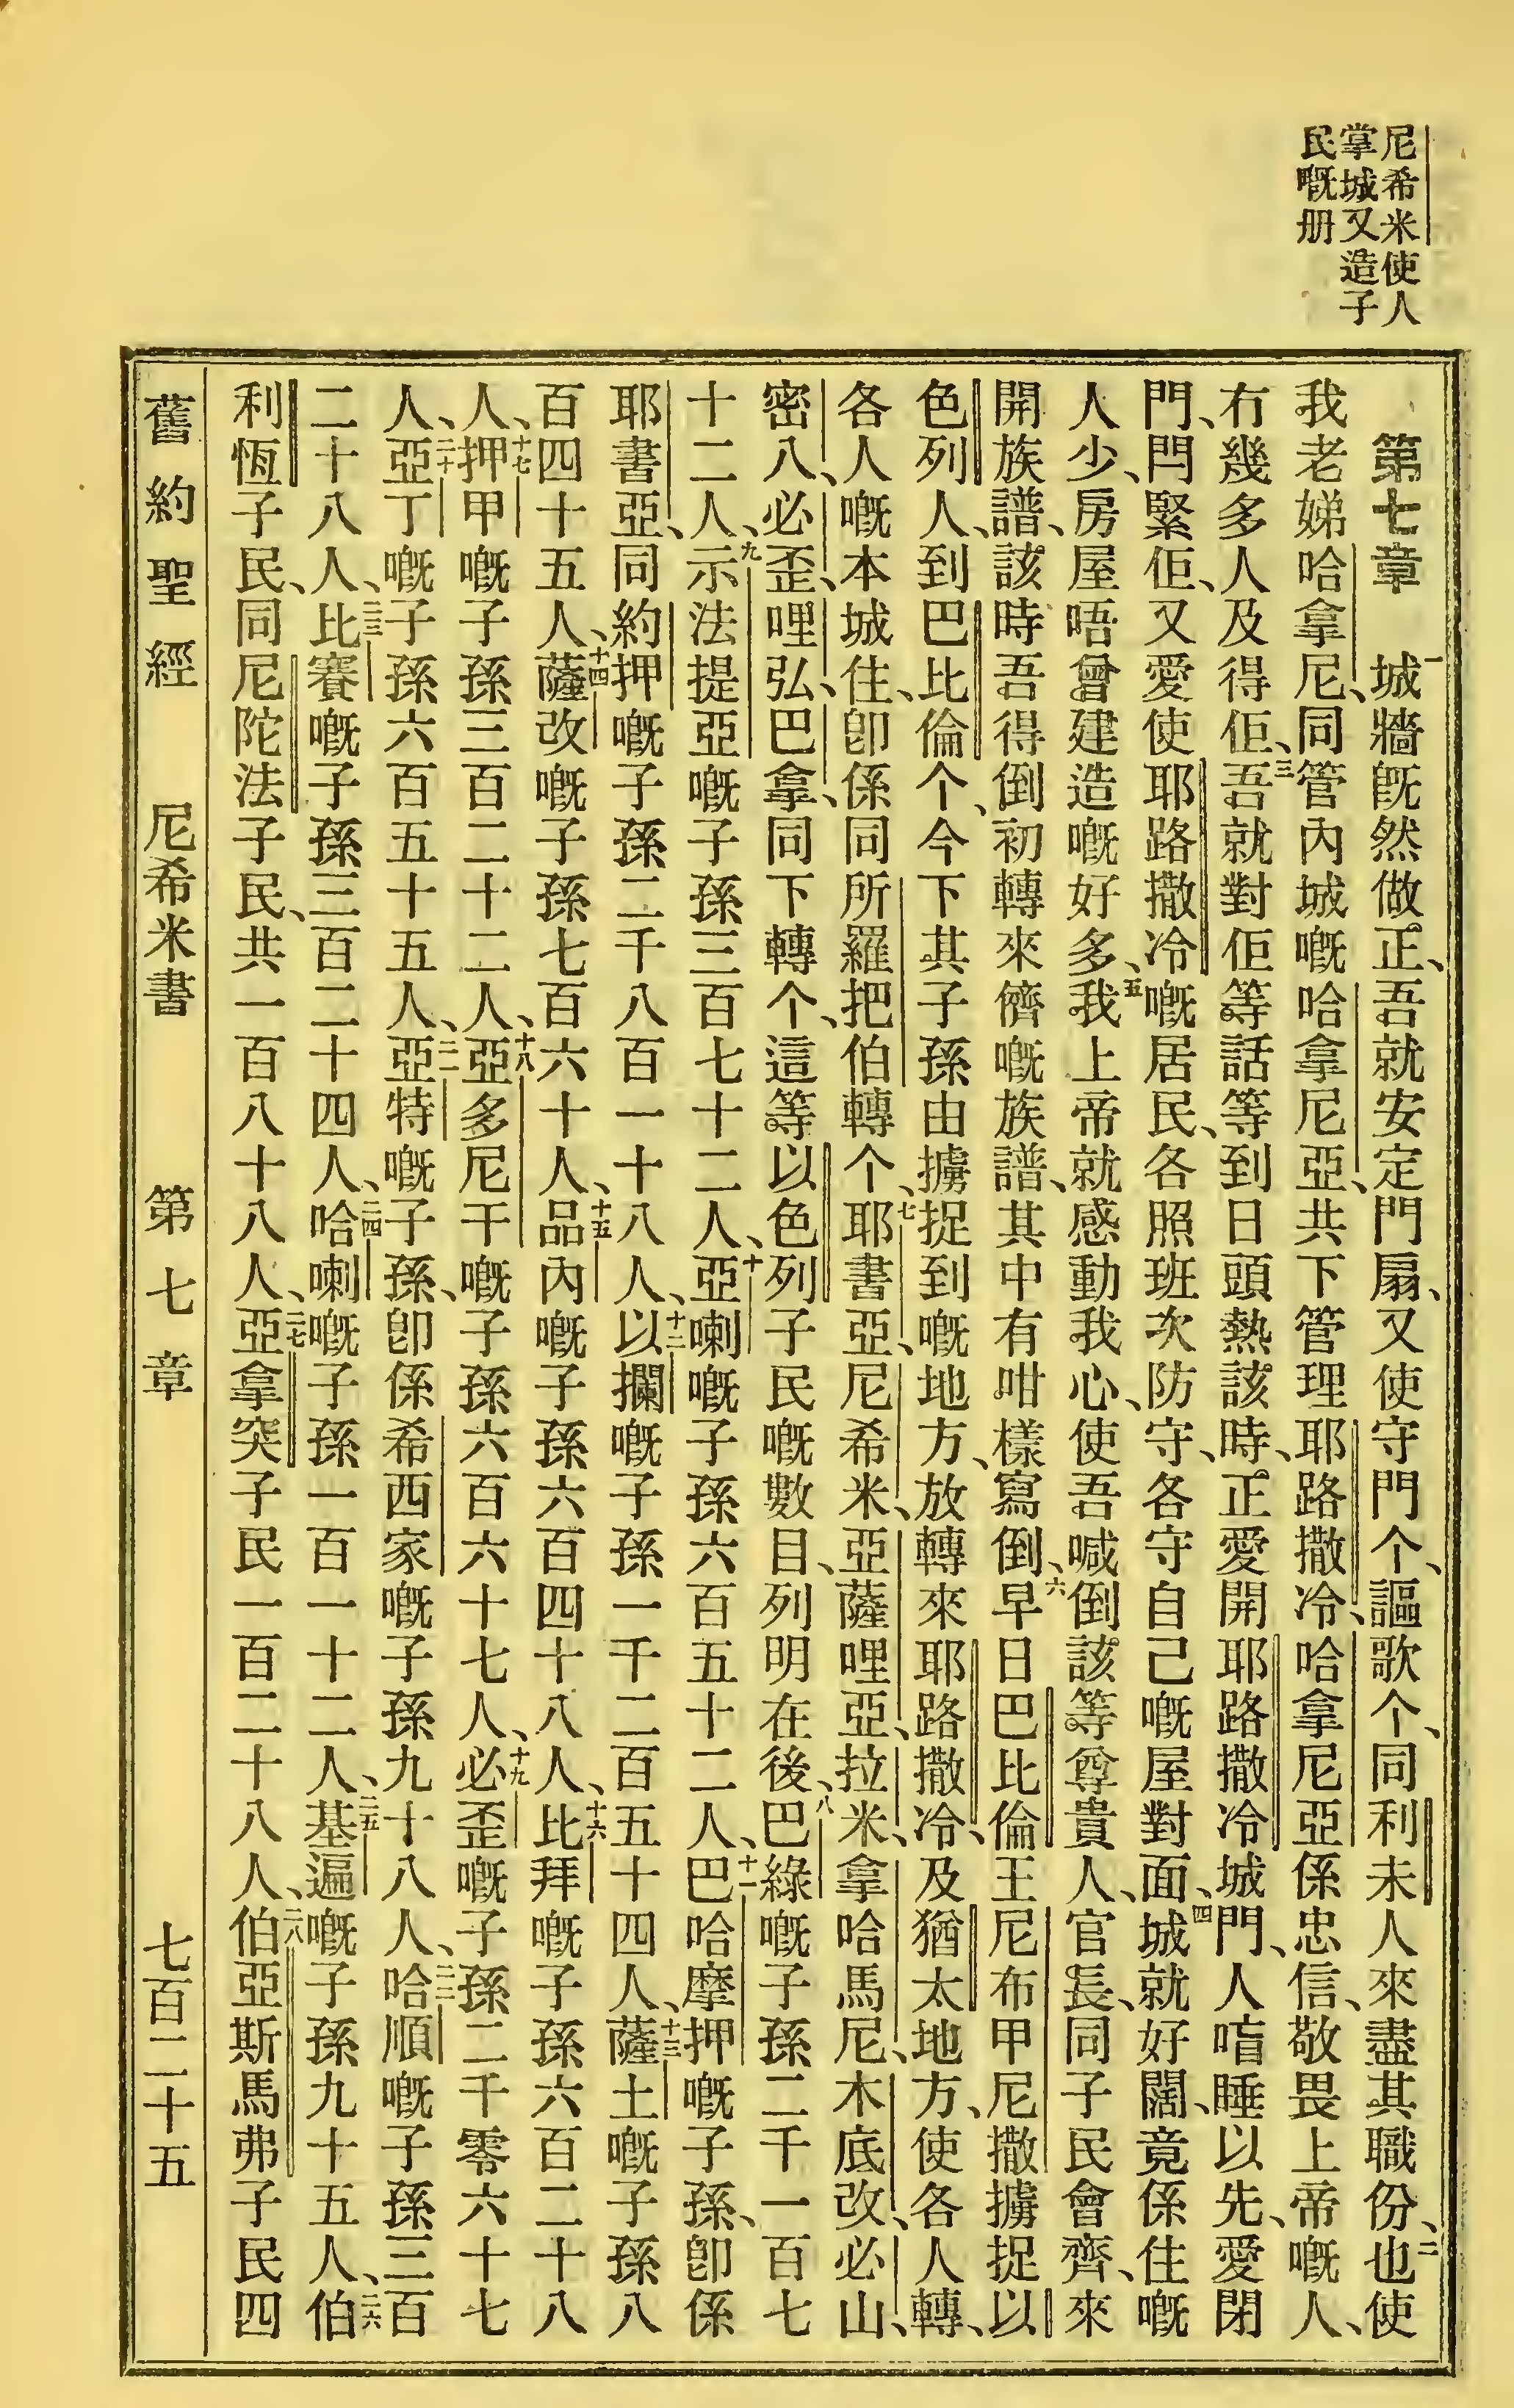 尼希米使人
掌城又造子
民嘅册
第七章 一城牆旣然做正、吾就安定門扇、又使守門个、謳歌个、同利未人來盡其職份、二也使
我老娣哈拿尼、同管內城嘅哈拿尼亞、共下管理耶路撒冷、哈拿尼亞係忠信、敬畏上帝嘅人、
冇幾多人及得佢、三吾就對佢等話等到日頭熱該時、正愛開耶路撒冷城門、人唔睡以先、愛閉
門、閂緊佢、又愛使耶路撒冷嘅居民、各照班次防守、各守自己嘅屋對面、四城就好闊、竟係住嘅
人少、房屋唔曾建造嘅好多、五我上帝就感動我心、使吾喊倒該等尊貴人、官長、同子民會齊、來
開族譜、該時吾得倒初轉來儕嘅族譜、其中有咁樣寫倒、六早日巴比倫王尼布甲尼撒擄捉以
色列人、到巴比倫个、今下其子孫由擄捉到嘅地方、放轉來耶路撒冷、及猶太地方、使各人轉、
各人嘅本城住、卽係同所羅把伯轉个、七耶書亞、尼希米、亞薩哩亞、拉米、拿哈馬尼、木底改、必山、
密八、必歪、哩弘、巴拿、同下轉个、這等以色列子民嘅數目、列明在後、八巴綠嘅子孫二千一百七
十二人、九示法提亞嘅子孫三百七十二人、十亞喇嘅子孫六百五十二人、十一巴哈摩押嘅子孫、卽係
耶書亞、同約押嘅子孫二千八百一十八人、十二以攔嘅子孫一千二百五十四人、十三薩土嘅子孫八
百四十五人、十四薩改嘅子孫七百六十人、十五品內嘅子孫六百四十八人、十六比拜嘅子孫六百二十八
人、十七押甲嘅子孫三百二十二人、十八亞多尼干嘅子孫六百六十七人、十九必歪嘅子孫二千零六十七
人、二十亞丁嘅子孫六百五十五人、二一亞特嘅子孫、卽係希西家嘅子孫九十八人、二二哈順嘅子孫三百
二十八人、二三比賽嘅子孫三百二十四人、二四哈喇嘅子孫一百一十二人、二五基遍嘅子孫九十五人、二六伯
利恆子民、同尼陀法子民、共一百八十八人、二七亞拿突子民一百二十八人、二八伯亞斯馬弗子民四
舊約聖經 尼希米書 第七章 七百二十五